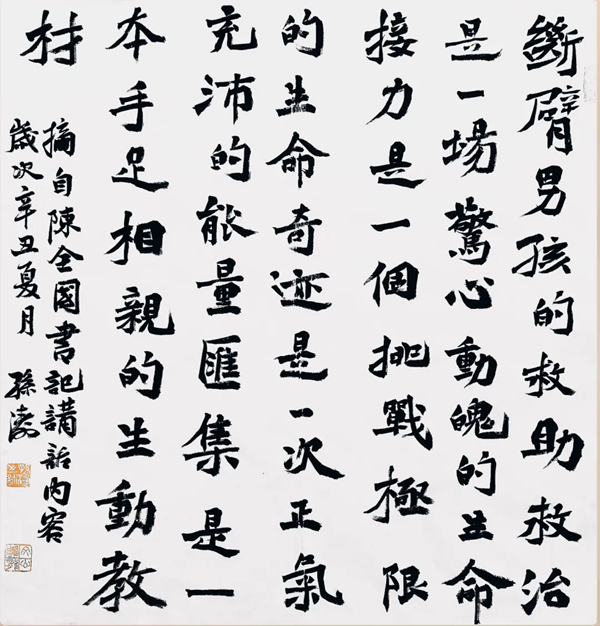 斷臂男孩的救助救治
是一場驚心動魄的生命
接力是一個挑戰極限
的生命奇迹是一次正氣
充沛的能量匯集是一
本手足相親的生動教
材
摘自陳全國書記講話内容
歲次辛丑夏月 孫濤